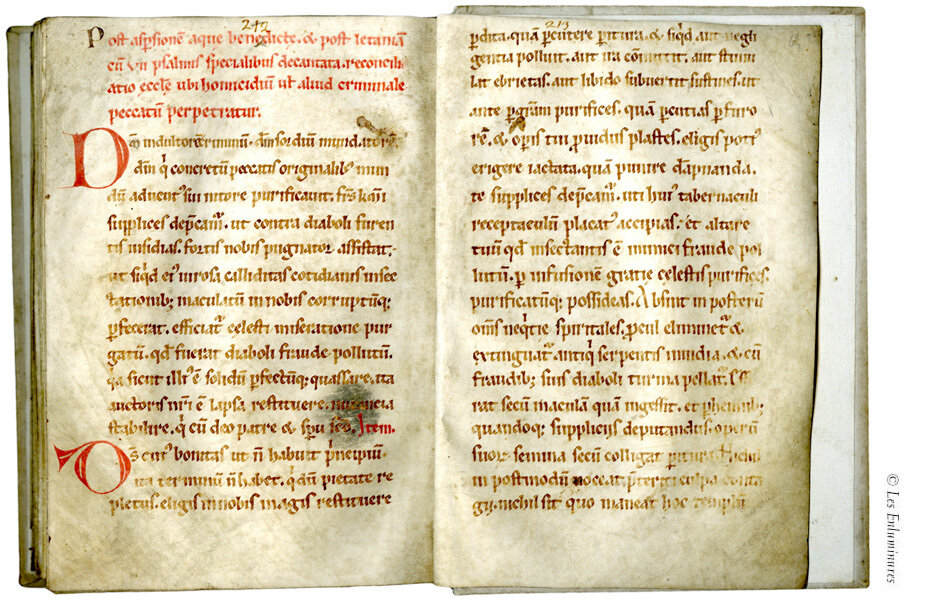 242
Post aspersionē aque benedicte. & post letaniā
cū vii psalmis specialibus decantata. reconcili
atio eccłe ubi homicidiuͫ uł aliud criminale
peccatū perpetratur.
Dm̄ indultorē criminū. dm̄ sordiū mundatorē.
dm̄ q̍ concretū peccatis originalib; mun
dū adventꝰ sui nitore purificavit. fr̄s km̄i
supplices dep̄camͬ. ut contra diaboli furen
tis insidias. fortis nobis pugnator assistat.
ut siq̍d eiꝰ virosa calliditas cotidianis infec
tationib; maculatū in nobis corruptūq;
ꝑfecerat. efficiatͬ celesti miseratione pur
gatū. qd̄ fuerat diaboli fraude pollutū.
q̄a sicut illiꝰ ē solidū ꝑfectūq; quassare. ita
auctoris nr̄i ē lapsa restituere.
stabilire. q̍ cū deo patre & sp̄u sc̄o. Item.
Ds̄ cuiꝰ bonitas ut n̄ habuit p̍ncipiū.
ita terminū n̄ habet. q̍ dīn pietate re
pletus. eligis in nobis magis restituere
213
ꝑdita. quā ꝑcutere ꝑitura. & siq̍d aut negli
gentia polluit. aut ira cōmittit. aut stimu
lat ebrietas. aut libido subvertit sustines. ut
ante ꝑ gr̄am purifices. quā ꝑcutias ꝑ furo
rē. & oꝑis tui ꝓvidus plastes. eligis potiꝰ
erigere iactata. quā punire dāpnanda.
te supplices dep̄camͬ. uti huiꝰ tabernaculi
receptaculū placatꝰ accipias. et altare
tuū qd̄ insectantis ē inimici fraude pol
lutū. ꝑ infusionē gratie celestis purifices.
purificatūq; possideas. Absint in posterū
om̄s neq̍tie spiritales. ꝓcul eliminetͬ &
extinguatͬ antiq̍ serpentis invidia. & cū
fraudib; suis diaboli turma pellatͬ.
rat secū maculā quā ingessit. et phennib;
quandoq; suppliciis deputandus. opeꝝ
suoꝝ semina secū colligat ꝑitura. Nichil
in postmodū noceat ꝑteriti culpa conta
gii. nichil sit quo maneat hoc templū
© Les Enluminures